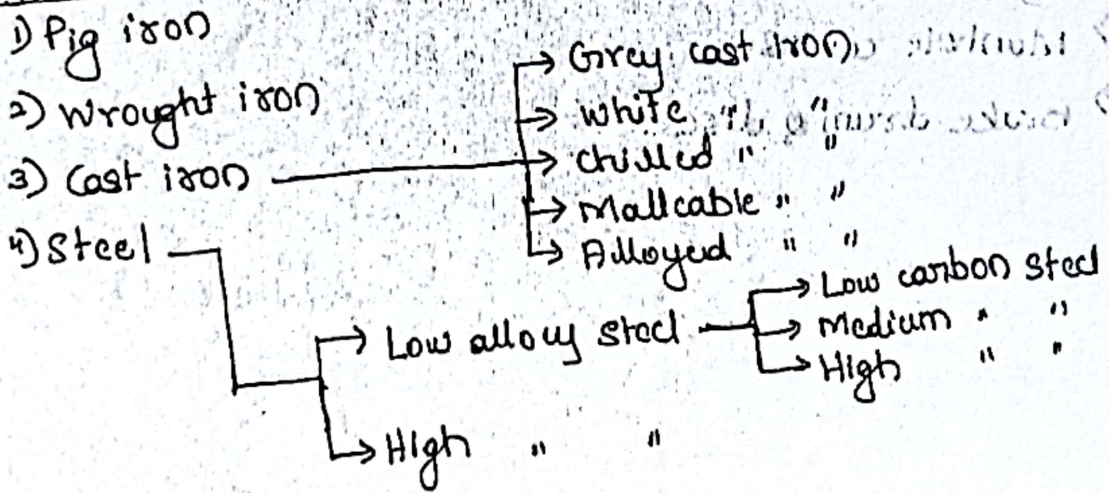 1) Pig iron
2) Wrought iron
3) Cast iron
→ Grey cast iron
→ White " "
→ chilled " "
→ Malleable " "
→ Alloyed " "
4) Steel
→ Low alloy steel
→ Low carbon steel
→ Medium " "
→ High " "
→ High " "